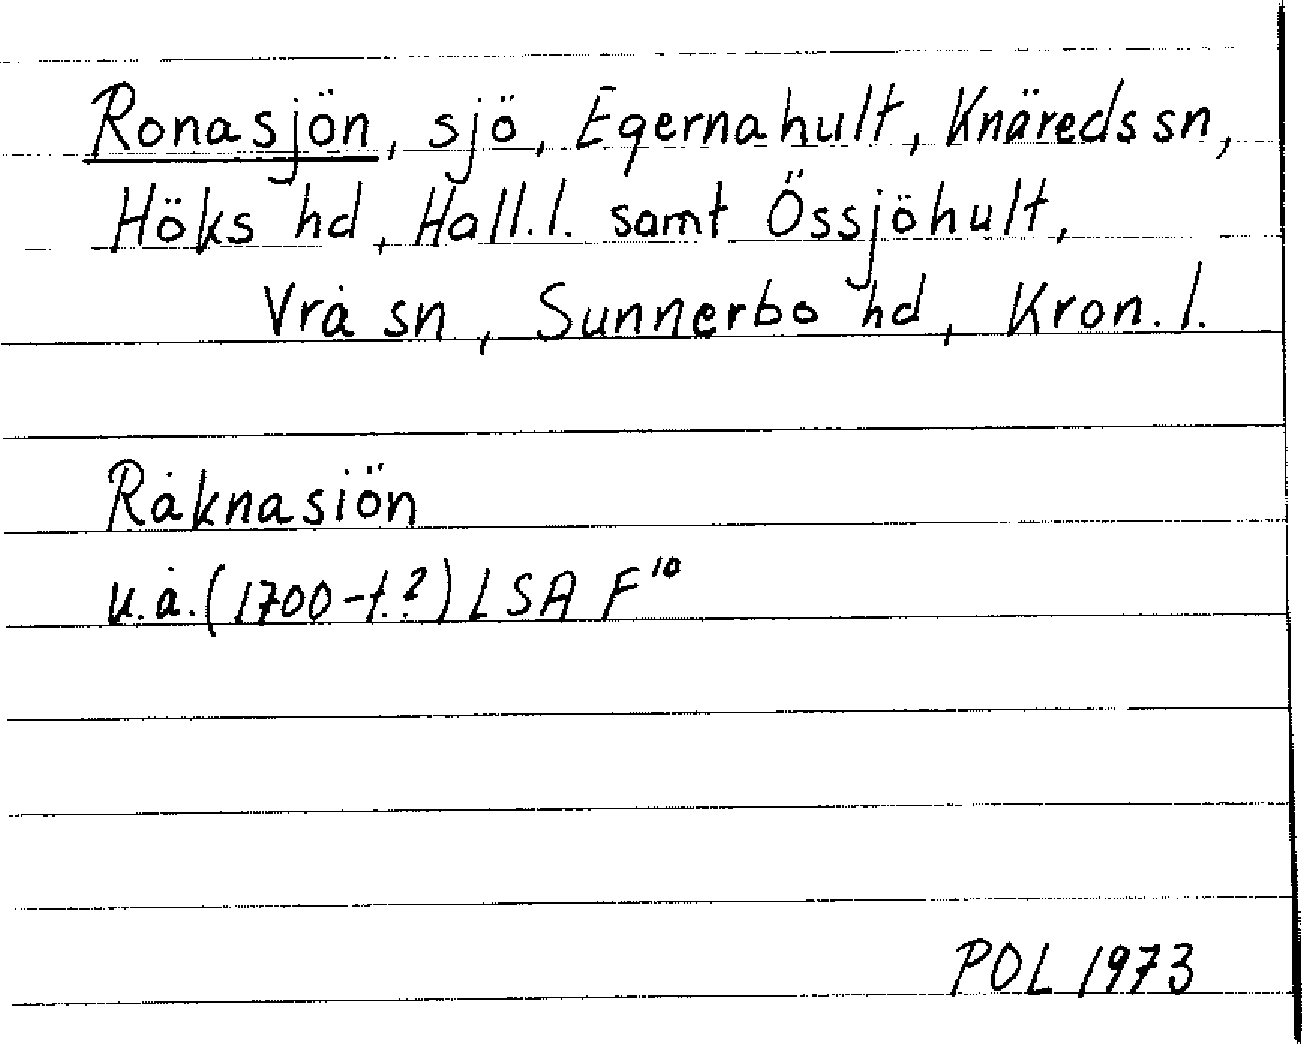 Ronasjön, sjö, Egernahult, Knäreds sn,
Höks hd, Hall.l. samt Össjöhult,
Vrå sn, Sunnerbo hd, Kron.l.
Råknasiön
u.å.(1700-t.?) LSA F¹⁰
POL 1973